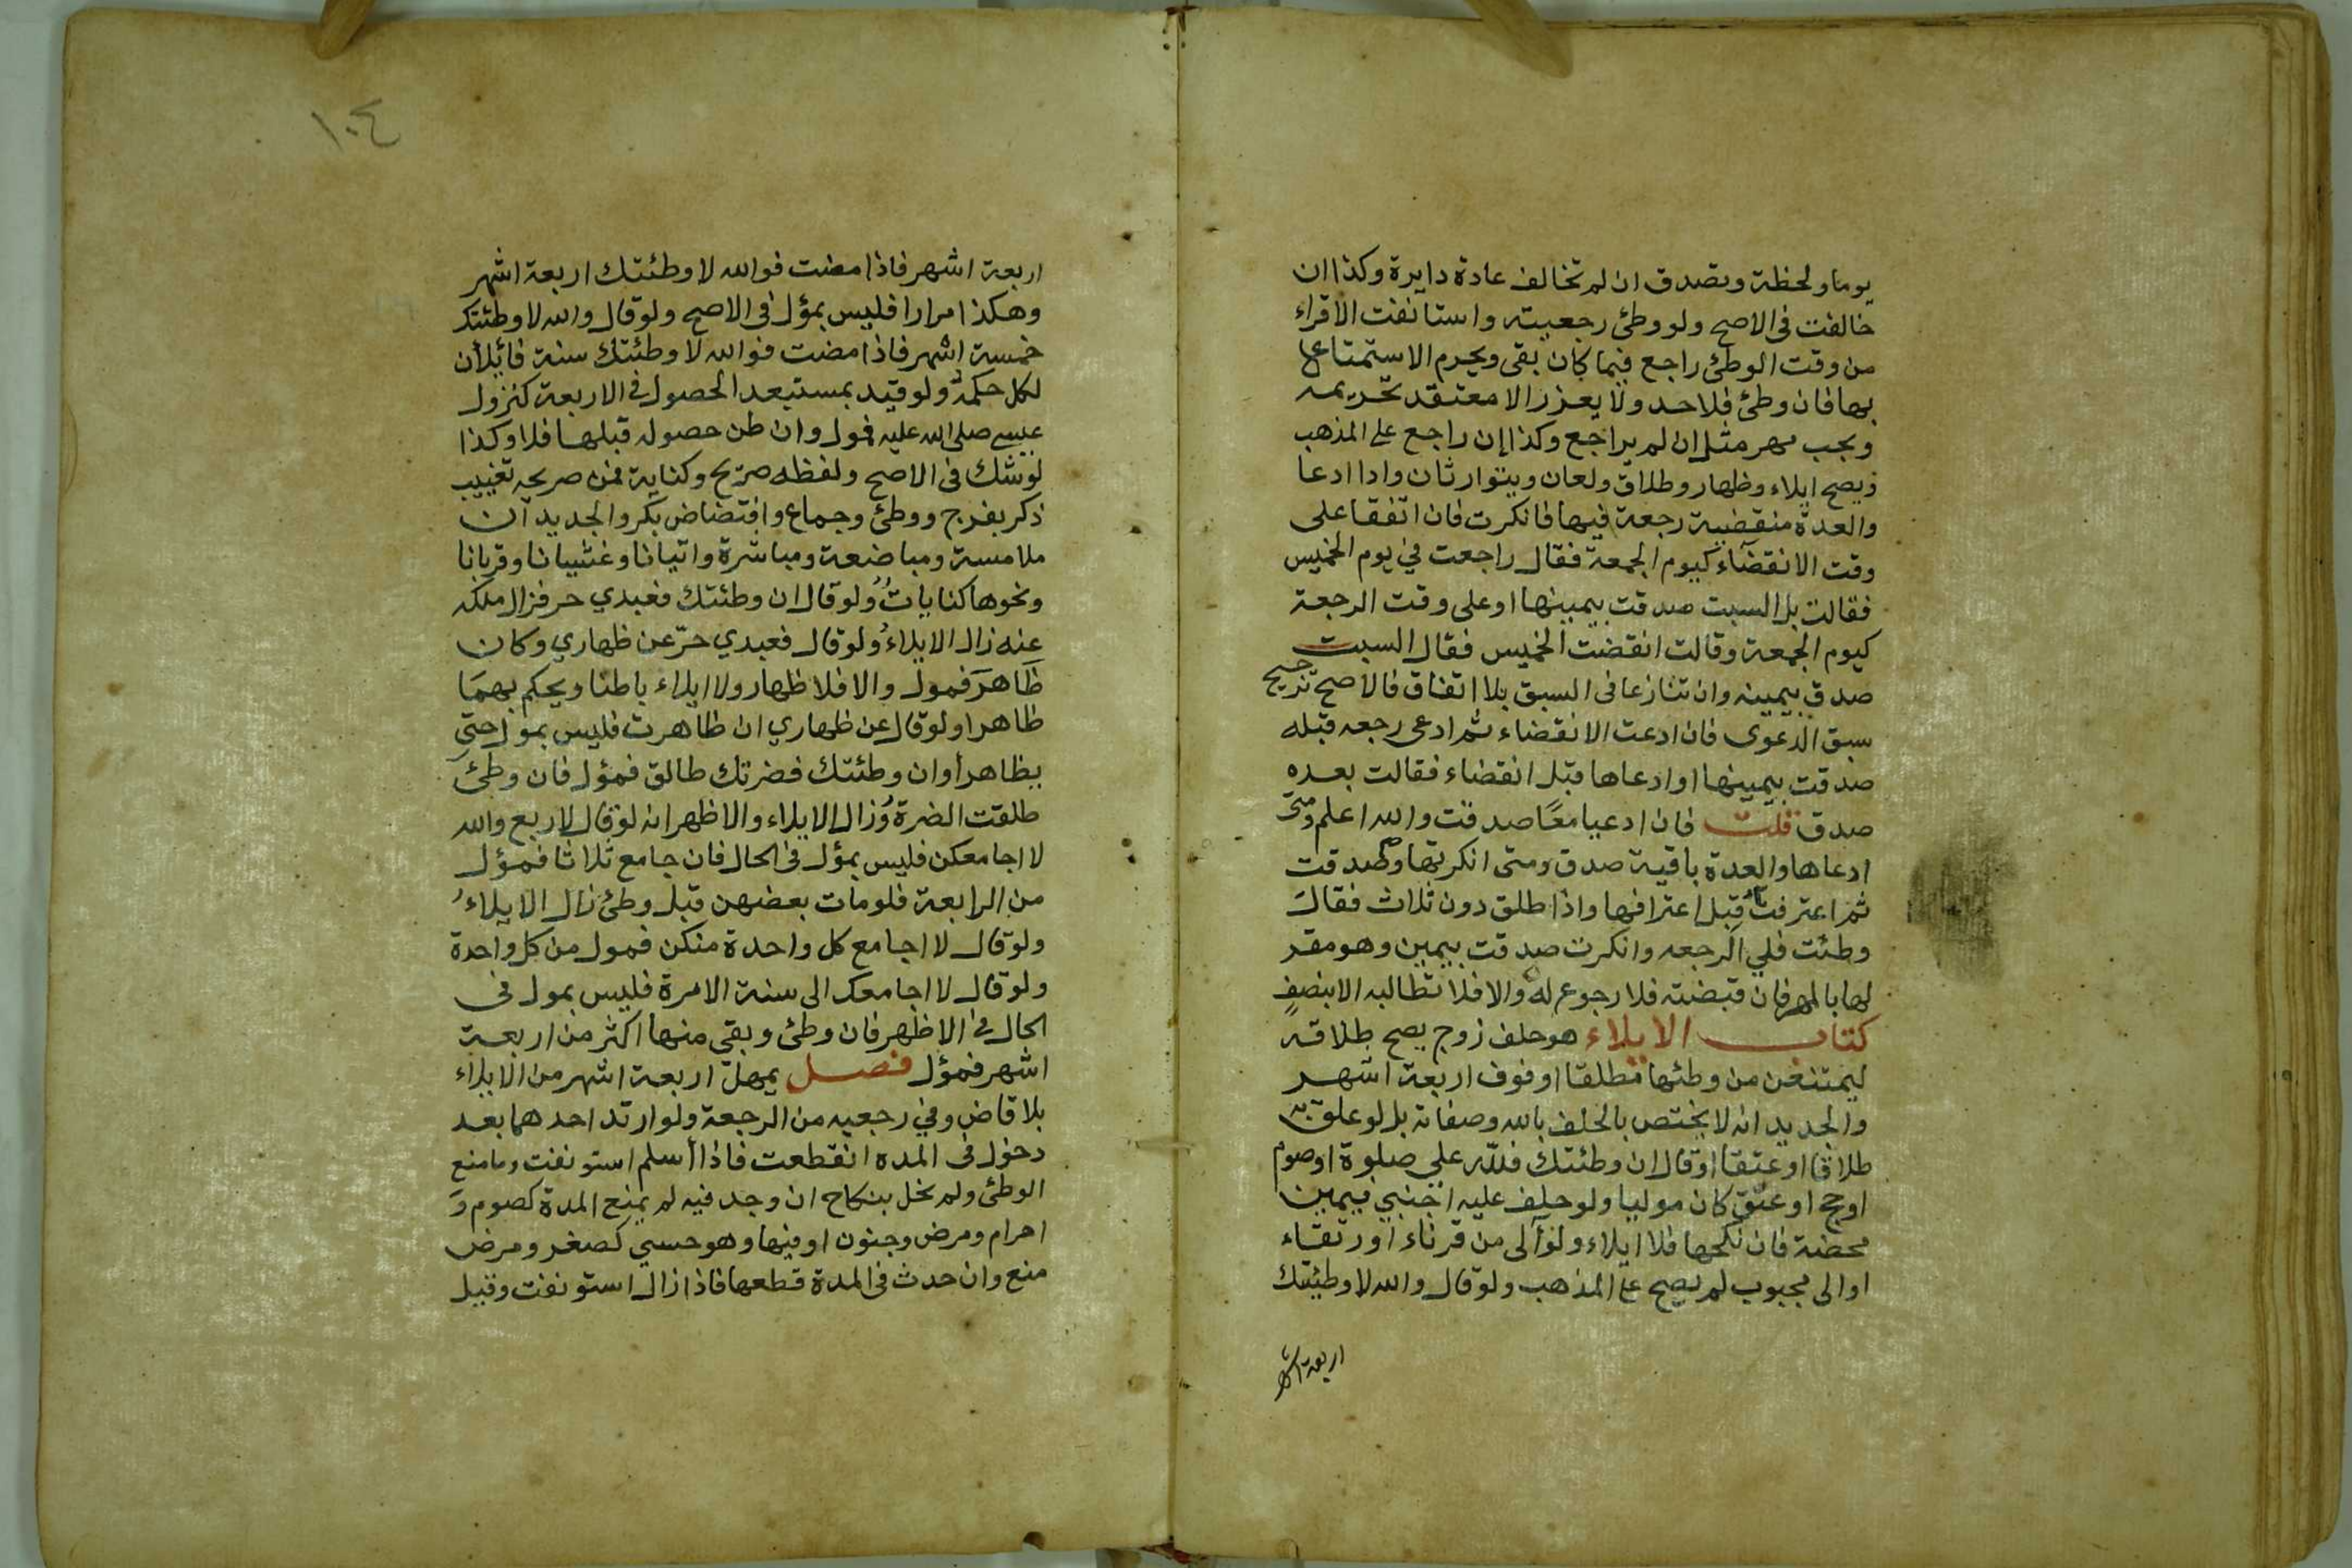 يوما ولحظة وتصدق ان لم تخالف عادة دايرة وكذا ان
خالفت فى الاصح ولو وطئ رجعيته واستانفت الاقراء
من وقت الوطئ راجع فيما كان بقى ويحرم الاستمتاع
بها فان وطئ فلا حد ولا يعزر الا معتقد تحريمه
ويجب مهر مثل ان لم يراجع وكذا إن راجع على المذهب
ويصح ايلاء وظهار وطلاق ولعان ويتوارثان واذا ادعا
والعدة منقضية رجعة فيها فانكرت فان اتفقا على
وقت الانقضاء كيوم الجمعة فقال راجعت في يوم الخميس
فقالت بل السبت صدقت بيمينها او على وقت الرجعة
كيوم الجمعة وقالت انقضت الخميس فقال السبت
صدق بيمينه وان تنازعا فى السبق بلا اتفاق فالاصح ترجيح
سبق الدعوى فان ادعت الانقضاء ثم ادعى رجعه قبله
صدقت بيمينها او ادعاها قبل انقضاء فقالت بعده
صدق قلت فان ادعيا معًا صدقت والله اعلم ومتى
ادعاها والعدة باقية صدق ومتى انكرتها وصدقت
ثم اعترفت قبل اعترافها واذا طلق دون ثلاث فقال
وطئت فلي الرجعه وانكرت صدقت بيمين وهو مقر
لها بالمهر فان قبضته فلا رجوع له والا فلا تطالبه الا بنصف
كتاب الايلاء هو حلف زوج يصح طلاقه
ليمتنعن من وطئها مطلقا او فوق اربعة اشهر
والجديد انه لا يختص بالحلف بالله وصفاته بل لو علق به
طلاقا او عتقا او قال ان وطئتك فلله علي صلوة او صوم
او حج او عتق كان موليا ولو حلف عليه اجنبي بيمين
محضة فان نكحها فلا ايلاء ولو آلى من قرناء او رتقاء
او الى مجبوب لم يصح على المذهب ولو قال والله لا وطيتك
اربعة اشهر
١٠٤
اربعة اشهر فاذا مضت فوالله لا وطئتك اربعة اشهر
وهكذا مرارا فليس بمؤل فى الاصح ولو قال والله لا وطئتك
خمسة اشهر فاذا مضت فوالله لا وطئتك سنة فائلان
لكل حكمه ولو قيد بمستبعد الحصول في الاربعة كنزول
عيسى صلى الله عليه فمول وان ظن حصوله قبلها فلا وكذا
لو شك فى الاصح ولفظه صريح وكناية فمن صريحه تغييب
ذكر بفرج ووطئ وجماع وافتضاض بكر والجديد ان
ملامسة ومباضعة ومباشرة واتيانا وغشيانا وقربانا
ونحوها كنايات ولو قال ان وطئتك فعبدي حر فزال ملكه
عنه زال الايلاء ولو قال فعبدي حرّ عن ظهاري وكان
ظاهر فمول والا فلا ظهار ولا ايلاء باطنا ويحكم بهما
ظاهرا ولو قال عن ظهاري ان ظاهرت فليس بمول حتى
يظاهر أو ان وطئتك فضرتك طالق فمؤل فان وطئ
طلقت الضرة وزال الايلاء والاظهر انه لو قال لاربع والله
لا اجامعكن فليس بمؤل فى الحال فان جامع ثلاثا فمؤل
من الرابعة فلو مات بعضهن قبل وطئ زال الايلاء
ولو قال لا اجامع كل واحدة منكن فمول من كل واحدة
ولو قال لا اجامعك الى سنة الا مرة فليس بمول فى
الحال في الاظهر فان وطئ وبقى منها اكثر من اربعة
اشهر فمؤل فصل يمهل اربعة اشهر من الايلاء
بلا قاض وفي رجعيه من الرجعة ولو ارتد احدهما بعد
دخول فى المده انقطعت فاذا أسلم استونفت وما منع
الوطئ ولم يخل بنكاح ان وجد فيه لم يمنع المدة كصوم و
احرام ومرض وجنون او فيها وهو حسي كصغر ومرض
منع وان حدث فى المدة قطعها فاذا زال استونفت وقيل